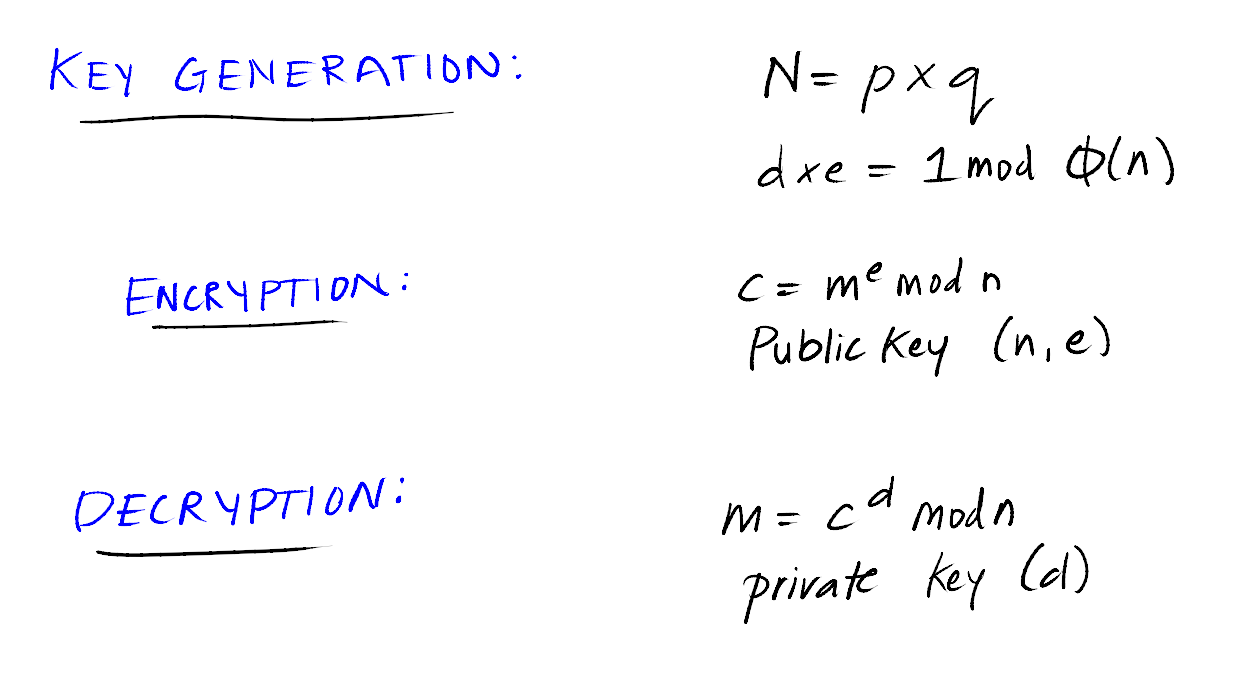 KEY GENERATION:
N = p x q
d x e = 1 mod Φ(n)
ENCRYPTION:
c = mᵉ mod n
Public Key (n, e)
DECRYPTION:
m = cᵈ mod n
private key (d)